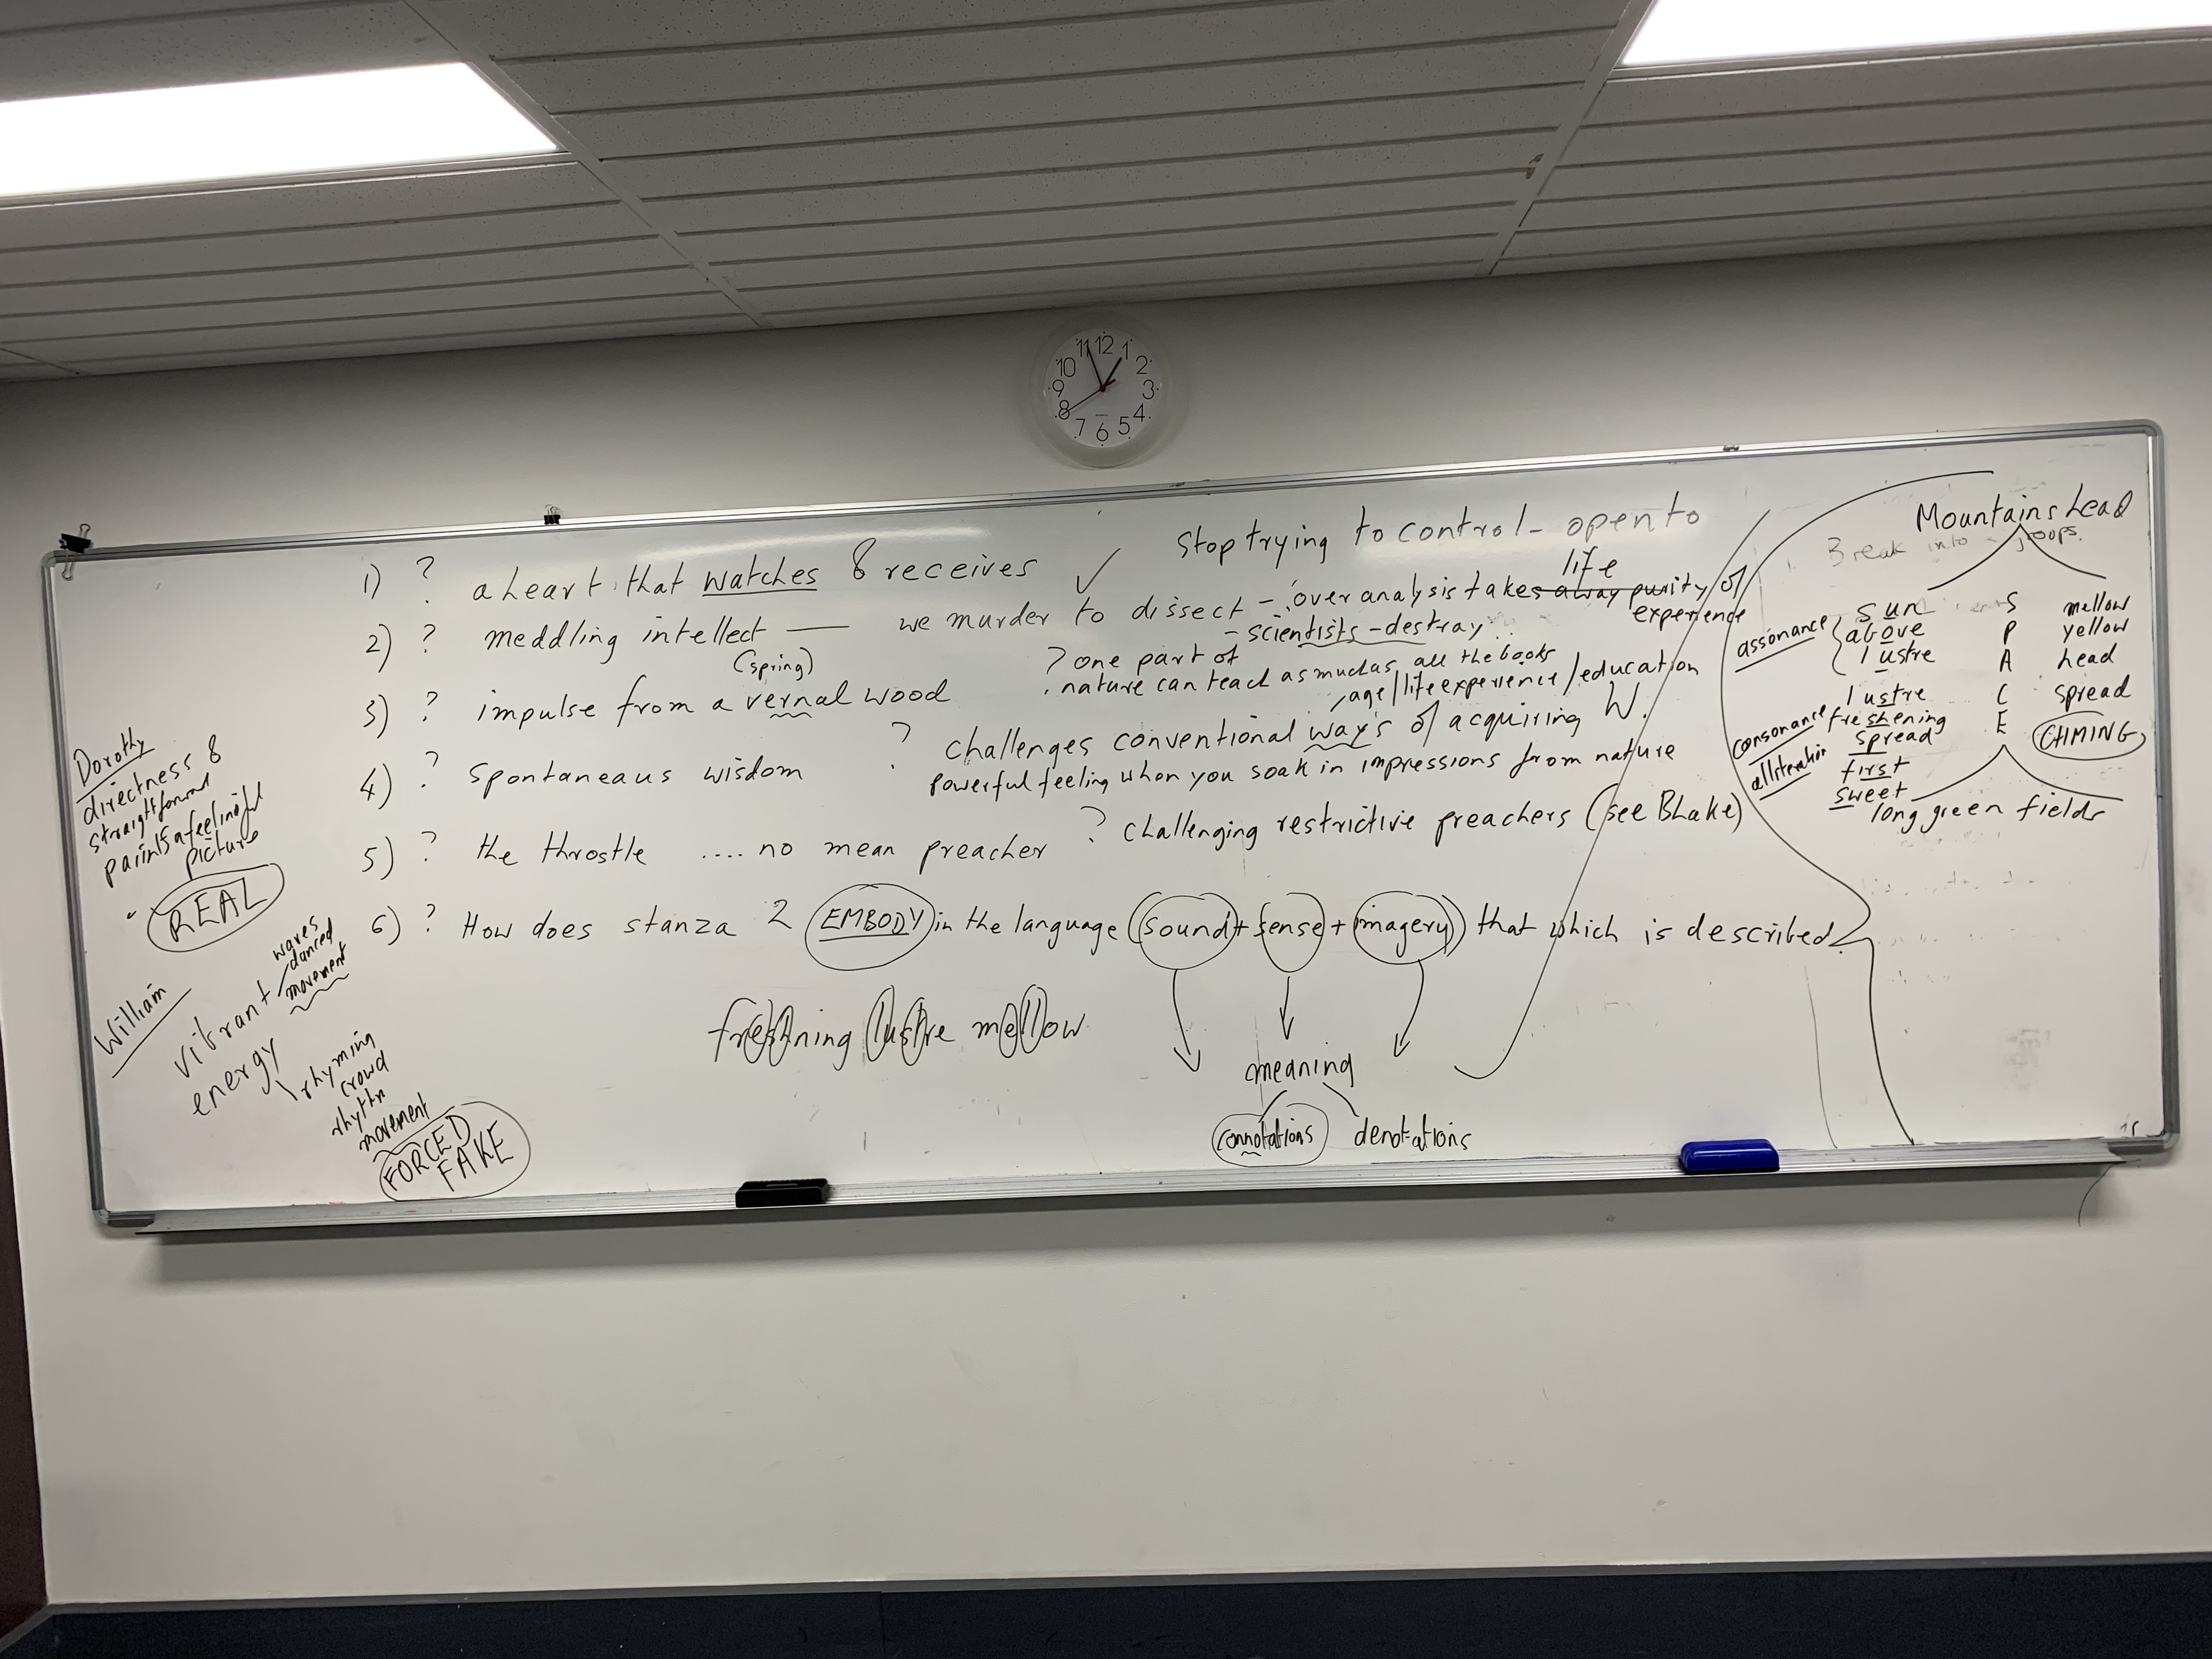 12
1
2
3
4
5
6
7
8
9
10
11
1) ? a heart that watches & receives ✓ Stop trying to control - open to
life
2) ? meddling intellect — we murder to dissect - over analysis takes away purity of
experience
- scientists - destray
3) ? impulse from a vernal wood
(spring)
? one part of
nature can teach as much as all the books
, age / life experience / education
4) ? Spontaneaus wisdom ? challenges conventional ways of acquiring W.
powerful feeling when you soak in impressions from nature
5) ? the throstle .... no mean preacher ? challenging restrictive preachers (see BLake)
6) ? How does stanza 2 EMBODY in the language (sound + sense + imagery) that which is described
freshning lustre mellow
meaning
connotations denotations
Dorothy
directness &
straightforward
paints a feeling of
picture
REAL
William
vibrant
energy
waves
danced
movement
rhyming
crowd
rhythm
movement
FORCED
FAKE
Mountains head
Break into groups.
assonance
sun
above
lustre
consonance
alliteration
lustre
freshening
spread
first
sweet
S
P
A
C
E
mellow
yellow
head
spread
CHIMING
long green fields